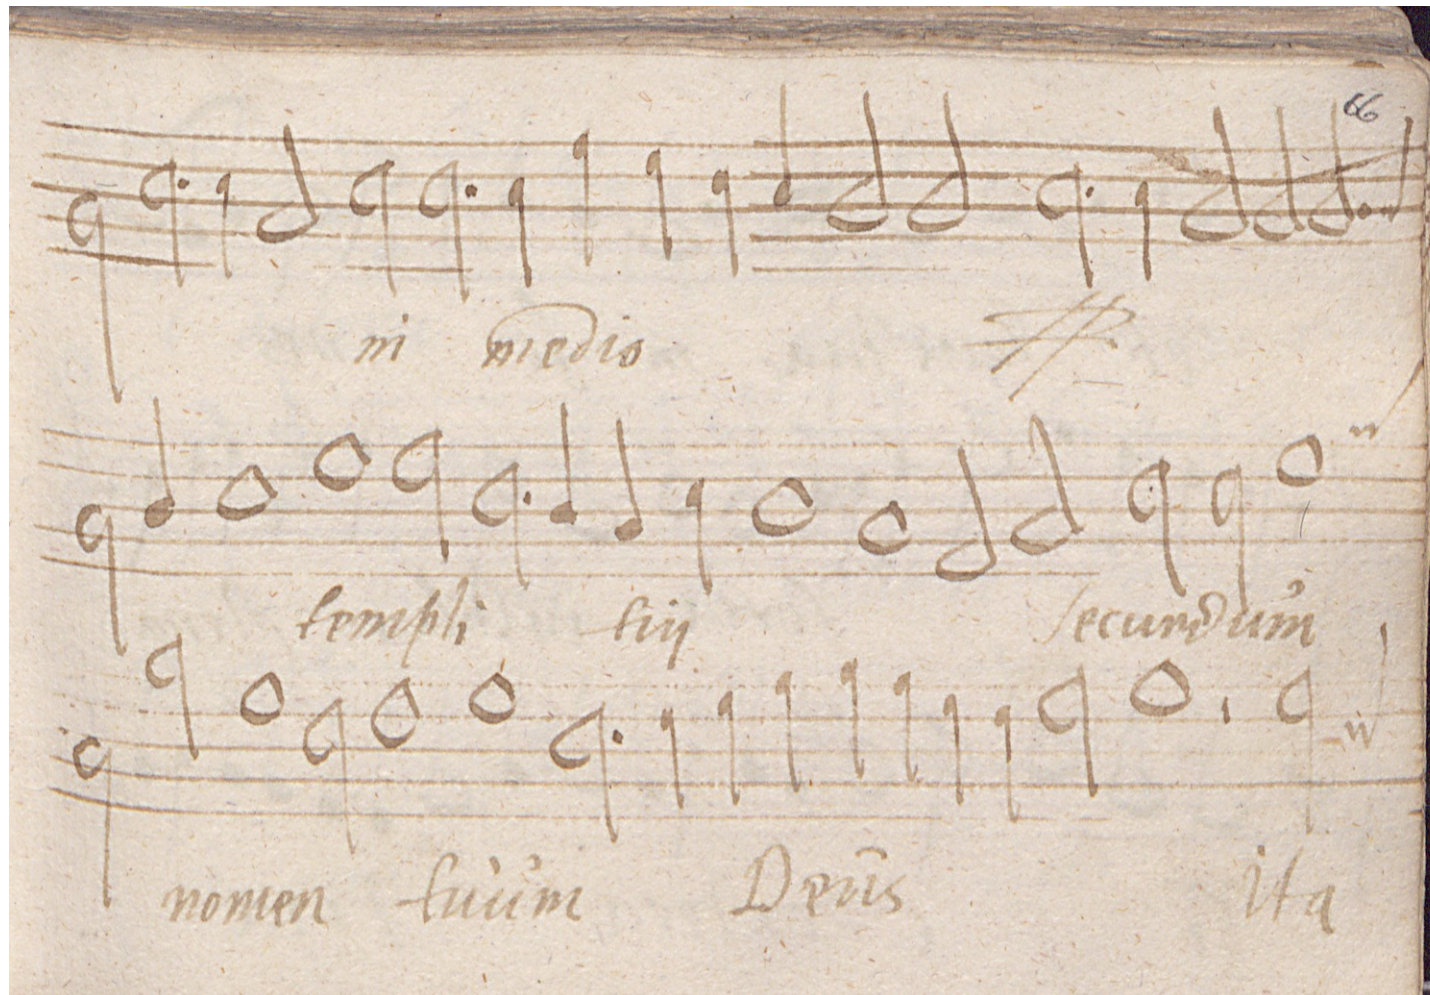 66
in medio
templi tui secundum
nomen tuum Deus Ita